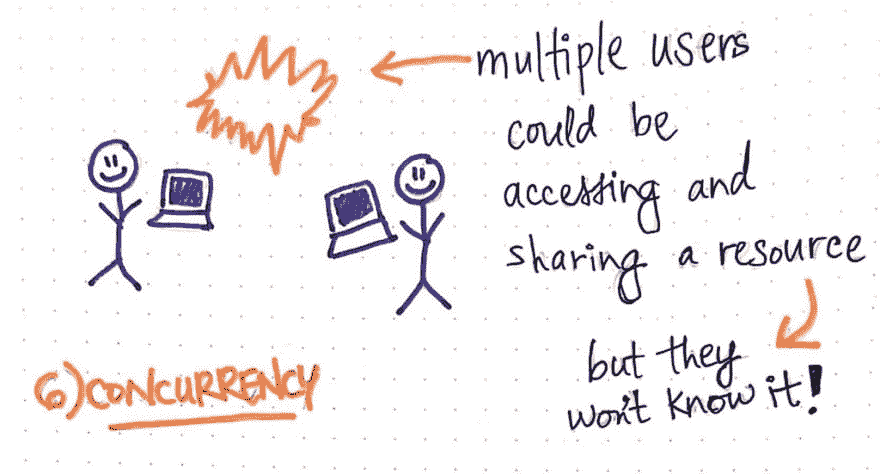 multiple users
could be
accessing and
sharing a resource
but they
won't know it!
6) CONCURRENCY